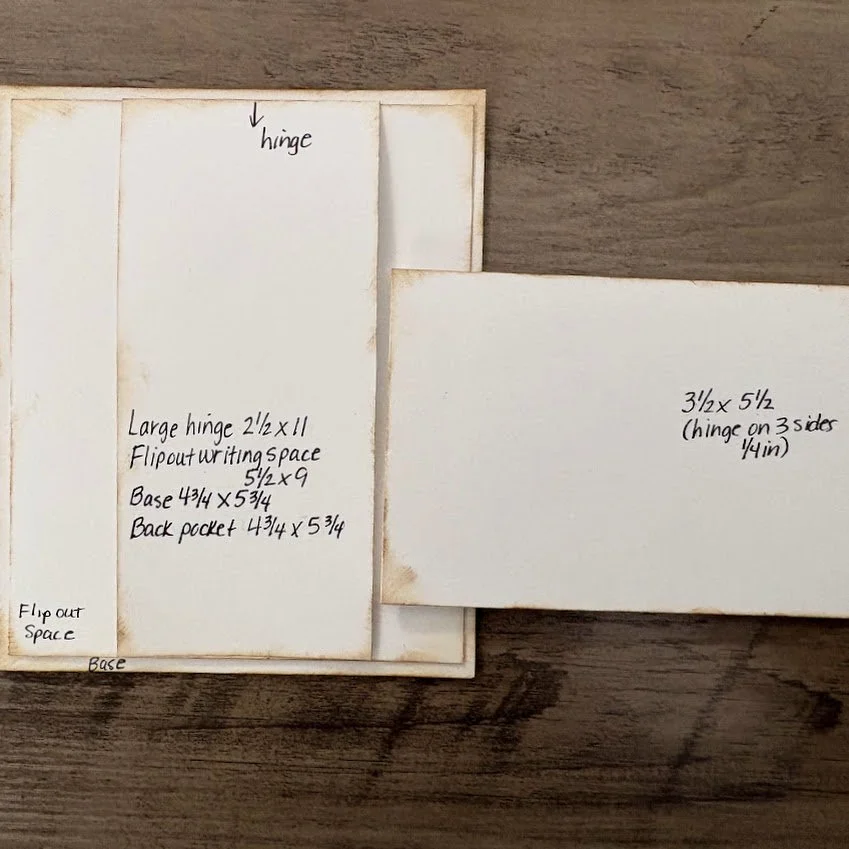 ↓
hinge
Large hinge 2 1/2 x 11
Flipout writing space
5 1/2 x 9
Base 4 3/4 x 5 3/4
Back pocket 4 3/4 x 5 3/4
Flip out
Space
Base
3 1/2 x 5 1/2
(hinge on 3 sides
1/4 in)